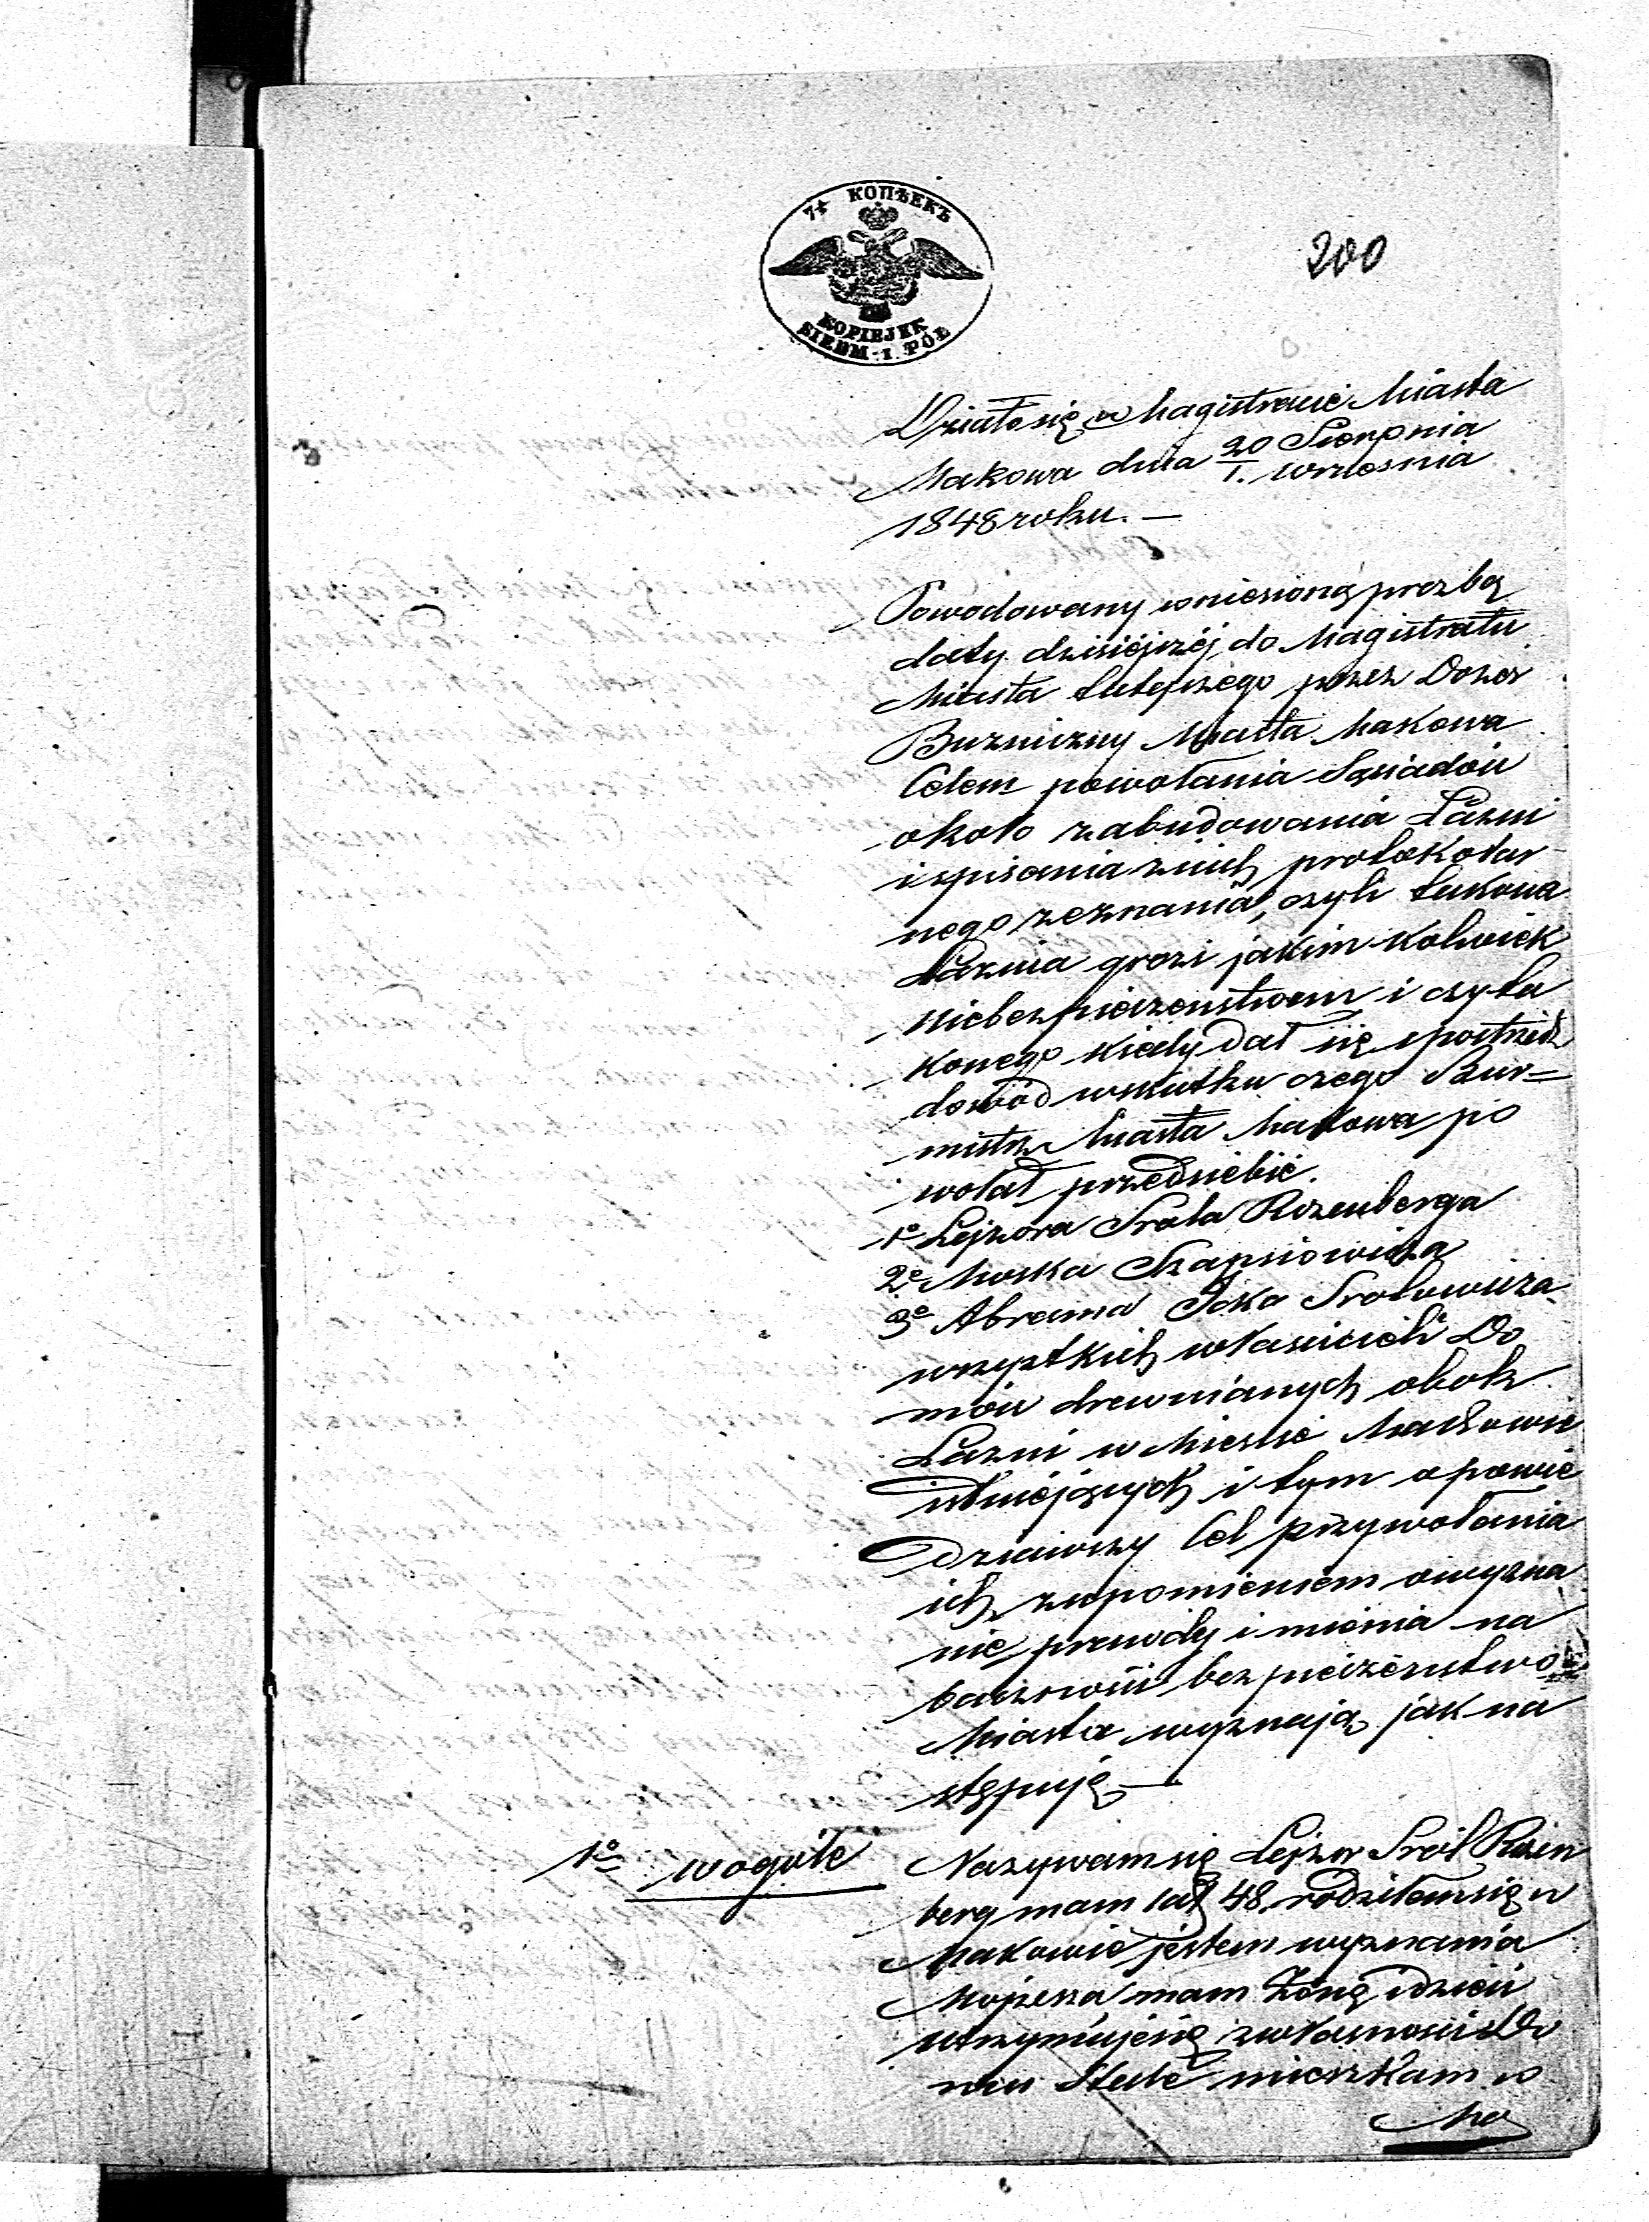 7½ КОПѢЕКЪ
KOPIEJEK
SIEDM I PÓŁ
200
Działo się w Magistracie Miasta
Makowa dnia 20/1. Sierpnia/Września
1848 roku. —
Powodowany wniesioną prozbą
daty dzisiéjszéj do Magistratu
Miasta tutejszego przez Dozor
Buzniczny Miasta Makowa
Celem powołania Sąsiadów
około zabudowania Łazni
i spisania z nich protokolar
nego zeznania, czyli takowa
Łaznia grozi jakim kolwiek
niebezpieczenstwem i czy ta
kowego kiedy dał się spostrzedz
dowód wskutku czego Bur=
mistrz Miasta Makowa po
wołał przedsiebie.
1o Lejzora Srola Rozenberga
2o Moska Szapsiowicza
3o Abrama Icka Srolowicza
wszystkich właścicieli Do
mów drewnianych obok
Łazni w Mieście Makowie
istniejących i tym opowie
dziawszy Cel przywołania
ich, z upomnieniem o wyzna
nie prawdy i mienia na
baczności bezpieczeństwo
Miasta wyznają jak na
stępuję —
1o wogóle
Nazywam się Lejzor Srol Rozen
berg mam lat 48, rodziłem się w
Makowie jestem wyznania
Mojżesza mam Żonę i dzieci
utrzymuje się z własności Do
mu Stale mieszkam w
Ma